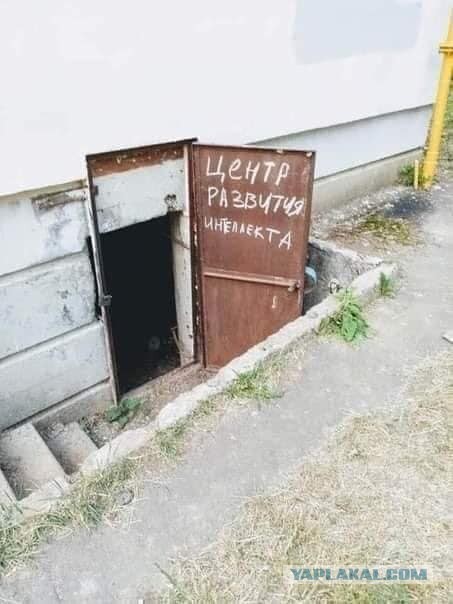 ЦЕНТР
РАЗВИТИЯ
ИНТЕЛЛЕКТА
YAPLAKAL.COM